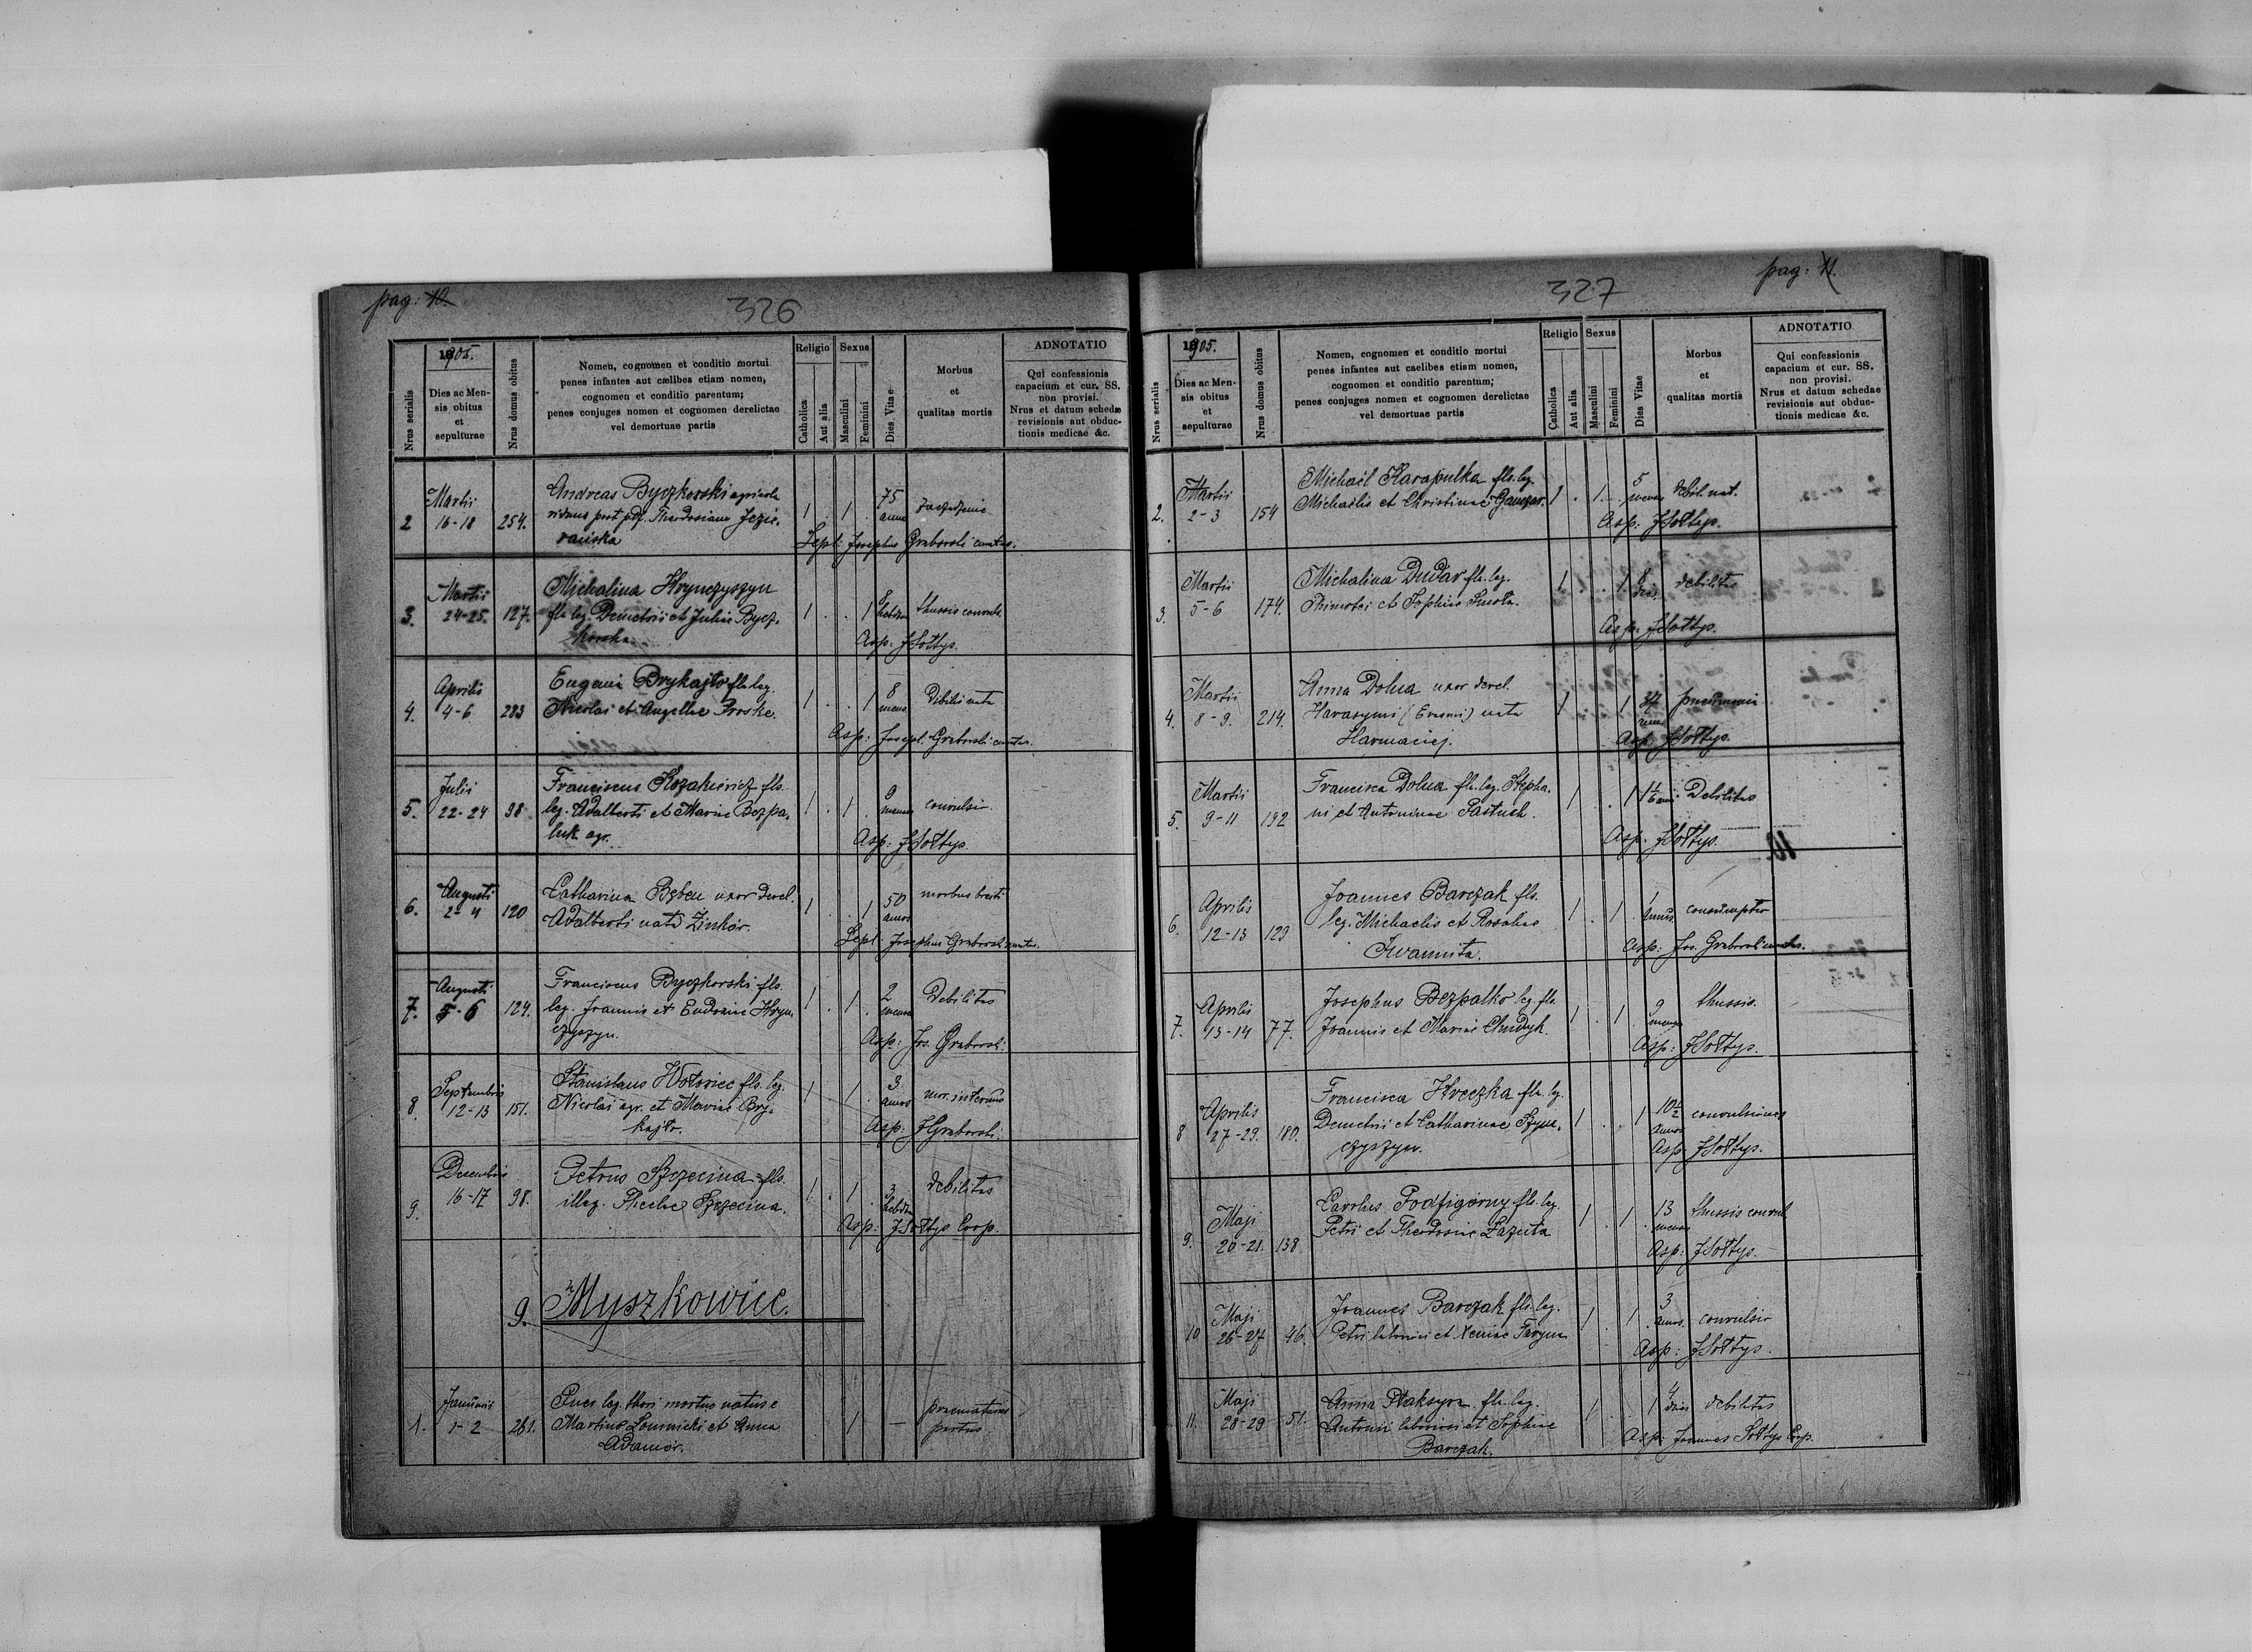 pag: 10.
326
1905.
Nrus serialis
Dies ac Mensis obitus et sepulturae
Nrus domus obitus
Nomen, cognomen et conditio mortui
penes infantes aut cælibes etiam nomen,
cognomen et conditio parentum;
penes conjuges nomen et cognomen derelictae
vel demortuae partis
Religio
Catholica
Aut alia
Sexus
Masculini
Feminini
Dies Vitae
Morbus
et
qualitas mortis
ADNOTATIO
Qui confessionis
capacium et cur. SS.
non provisi.
Nrus et datum schedæ
revisionis aut obduc-
tionis medicae &c.
2 Martii 16-18 254. Andreas Byczkowski agricola
viduus post pdf. Theodosiam Jezie-
rańska 1 . 1 . 75 anno
Sept: Josephus Grabowski curatus.
3. Martii 24-25. 127. Michalina Hrynczyszyn
fla leg. Demetrii et Juliae Bycz-
kowska 1 . . 1 8 hebdom thussis convuls.
Asp: JSołtys.
4. Aprilis 4-6 283 Eugeni Brykajło fla leg.
Nicolai et Angellae Proske. 1 . . 1 8 mens. Debilis nata
Asp: Joseph. Grabowski curatus.
5. Julii 22-24 38 Franciscus Kozakiewicz fls.
leg. Adalberti et Mariae Bezpa-
luk agr. 1 . 1 . 9 menses convulsi.
Asp: JSołtys.
6. Augusti 2-4 120 Catharina Bęben uxor derel.
Adalberti nata Zinkór. 1 . . 1 50 annos morbus
Sept: Josephus Grabowski curatus.
7. Augusti 5-6 124. Franciscus Byczkowski fls.
leg. Joannis et Eudoxiae Hryn-
czyszyn. 1 . 1 . 2 menses Debilitas
Asp: Jos. Grabowski.
8. Septembris 12-13 151. Stanislaus Wołowiec fls. leg.
Nicolai agr. et Mariae Bry-
kajło. 1 1 . 3 annos mor. internus
Asp: JGrabowski.
9. Decembris 16-17 98. Petrus Szczecina fls.
illeg. Theclae Szczecina. 1 . 1 . 3 hebdom debilitas
Asp: JSołtys Coop.
9. Myszkowice.
1. Januarii 1-2 261. Puer leg. thori mortuo natus e
Martino Łoumicki et Anna
Adamór. 1 — praematurus
partus
pag: 11.
327
1905.
Nrus serialis
Dies ac Mensis obitus et sepulturae
Nrus domus obitus
Nomen, cognomen et conditio mortui
penes infantes aut caelibes etiam nomen,
cognomen et conditio parentum;
penes conjuges nomen et cognomen derelictae
vel demortuae partis
Religio
Catholica
Aut alia
Sexus
Masculini
Feminini
Dies Vitae
Morbus
et
qualitas mortis
ADNOTATIO
Qui confessionis
capacium et cur. SS.
non provisi.
Nrus et datum schedae
revisionis aut obduc-
tionis medicae &c.
2. Martii 2-3 154 Michaël Karapulka fls. leg.
Michaëlis et Christinae Ganczar. 1 . 1 . 5 menses debil. nat.
Asp: JSołtys.
3 Martii 5-6 174. Michalina Dudar fla. leg.
Thimotei et Sophiae Smoła. 1 . . 1 8 dies. debilitas
Asp. JSołtys.
4. Martii 8-9. 214. Anna Dolna uxor derel.
Harasymi (Erasmi) nata
Harmaciej. 1 1 37 pneumonia
Asp. JSołtys.
5. Martii 9-11 192 Francisca Dolna fla. leg. Stepha-
ni et Antoninae Pastuch. 1 . 1 Debilitas
Asp. JSołtys.
6. Aprilis 12-13 129 Joannes Barczak fls.
leg. Michaelis et Rosaliae
Iwannita. 1 . 1 . 1 annus consumptio
Asp: Jos. Grabowski curatus.
7. Aprilis 13-14 77. Josephus Bezpalko leg. fls.
Joannis et Mariae Chudyk. 1 . 1 . 9 menses thussis.
Asp: JSołtys.
8 Aprilis 27-29. 180. Francisca Hreczka fla. leg.
Demetrii et Catharinae Szym-
czyszyn. 1 . . 1 10 1/2 annos convulsiones
Asp. JSołtys.
9. Maji 20-21. 138. Carolus Podfigórny fls. leg.
Petri et Theodosiae Łazuta 1 . 1 . 13 menses thussis convul
Asp: JSołtys.
10 Maji 26-27 46. Joannes Barczak fls. leg.
Petri laboriosi et Xeniae Taryun 1 . 1 . 3 annos. convulsio
Asp: JSołtys.
11. Maji 28-29 51. Anna Ptaksyra fla. leg.
Antonii laboriosi et Sophiae
Barczak. 1 . . 1 4 dies debilitas
Asp: Joannes Sołtys Coop.